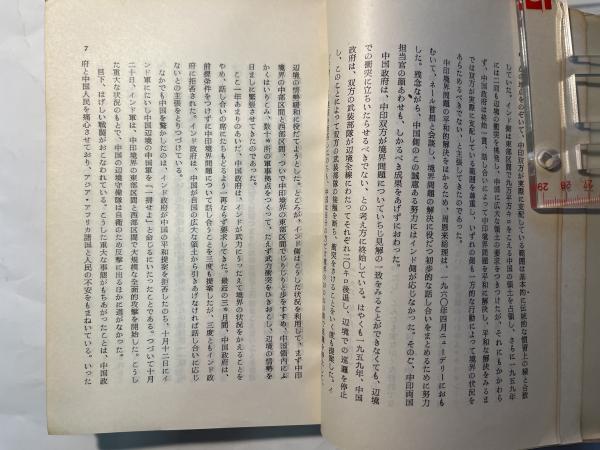 のぞいて、中印双方が実際に支配している範囲は基本的に伝統的な慣習上の線と合致
していた。インド側は東部区間で九万平方キロをこえる中国の領土を占領し、さらに一九五九年
には二回も辺境の衝突を挑発し、中国に広大な領土の要求をつきつけたが、それにもかかわら
ず、中国政府は終始一貫、話し合いによって中印境界問題を平和に解決し、平和な解決をみるま
では双方が実際に支配している範囲を尊重し、いずれの側も一方的な行動によって境界の状況を
あらためるべきでない、と主張してきたのであった。
中印境界問題の平和的解決をはかるため、周恩来総理は、一九六〇年四月ニューデリーにおも
むいて、ネール首相と会談し、境界問題の解決に役だつ初歩的な話し合いをまとめるために努力
した。残念ながら、中国側のこの誠意ある努力にはインド側が応じなかった。そのご、中印両国
担当官の顔あわせも、しかるべき成果をあげずにはおわった。
中国政府は、中印双方が境界問題についていちじ見解の一致をみることができなくても、辺境
での衝突に立ちいたらせるべきでない、との考え方に終始している。はやくも一九五九年、中国
政府は、双方の武装部隊が辺境全線にわたってそれぞれ二〇キロ後退し、辺境での巡邏を停止
し、このことによって双方の武装部隊の接触を断ち、衝突をさけることをいく度も提案した。イ
辺境の情勢緩和に役だてようとした。ところが、インド側はこうした状況を利用して、まず中印
境界の中部区間と西部区間、ついで中印境界の東部区間でじりじりと歩をすすめ、中国領内にふ
かくはいりこみ、数十ヵ所の軍事拠点をつくって、たえず武力衝突をひきおこし、辺境の情勢を
日ましに緊張させてきたのであった。
ここ一年あまりのあいだ、中国政府は、インドが武力にうったえて境界の現状をかえることを
やめ、話し合いの席にたちもどるよう一再ならず要求してきた。最近の三ヵ月間、中国政府は、
前提条件をつけずに中印境界問題について話し合うことを三度も提案したが、三度ともインド政
府に拒否された。インド政府は、中国が自国の広大な領土から引きあげなければ話し合いに応じ
ないとの主張をとりつづけている。
なかでも中国を驚かしたのは、インド政府が中国の平和提案を拒否したのち、十月十二日にイ
ンド軍にたいし中国辺境の中国軍を「一掃せよ」と命じるにいたったことである。つづいて十月
二十日、インド軍は、中印境界の東部区間と西部区間で大規模な全面的攻撃を開始した。こうし
た重大な状況のもとで、中国の辺境守備隊は自衛のため反撃に出るほかに道がなかった。
目下、はげしい戦闘がおこなわれている。こうした重大な事態がもちあがったことは、中国政
府と中国人民を痛心させており、アジア・アフリカ諸国と人民の不安をもまねいている。いった
7
27 28 29